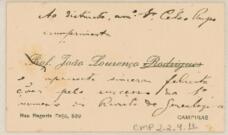 Ao distincto am.º Dr Celso
cumprimenta
Prof. João Lourenço Rodrigues
e apresenta sinceras felicita
ções pelo successo do 1º
numero da Revista do Genealogica
Rua Regente Feijó,
CAMPINAS
CMP 2.2.4.